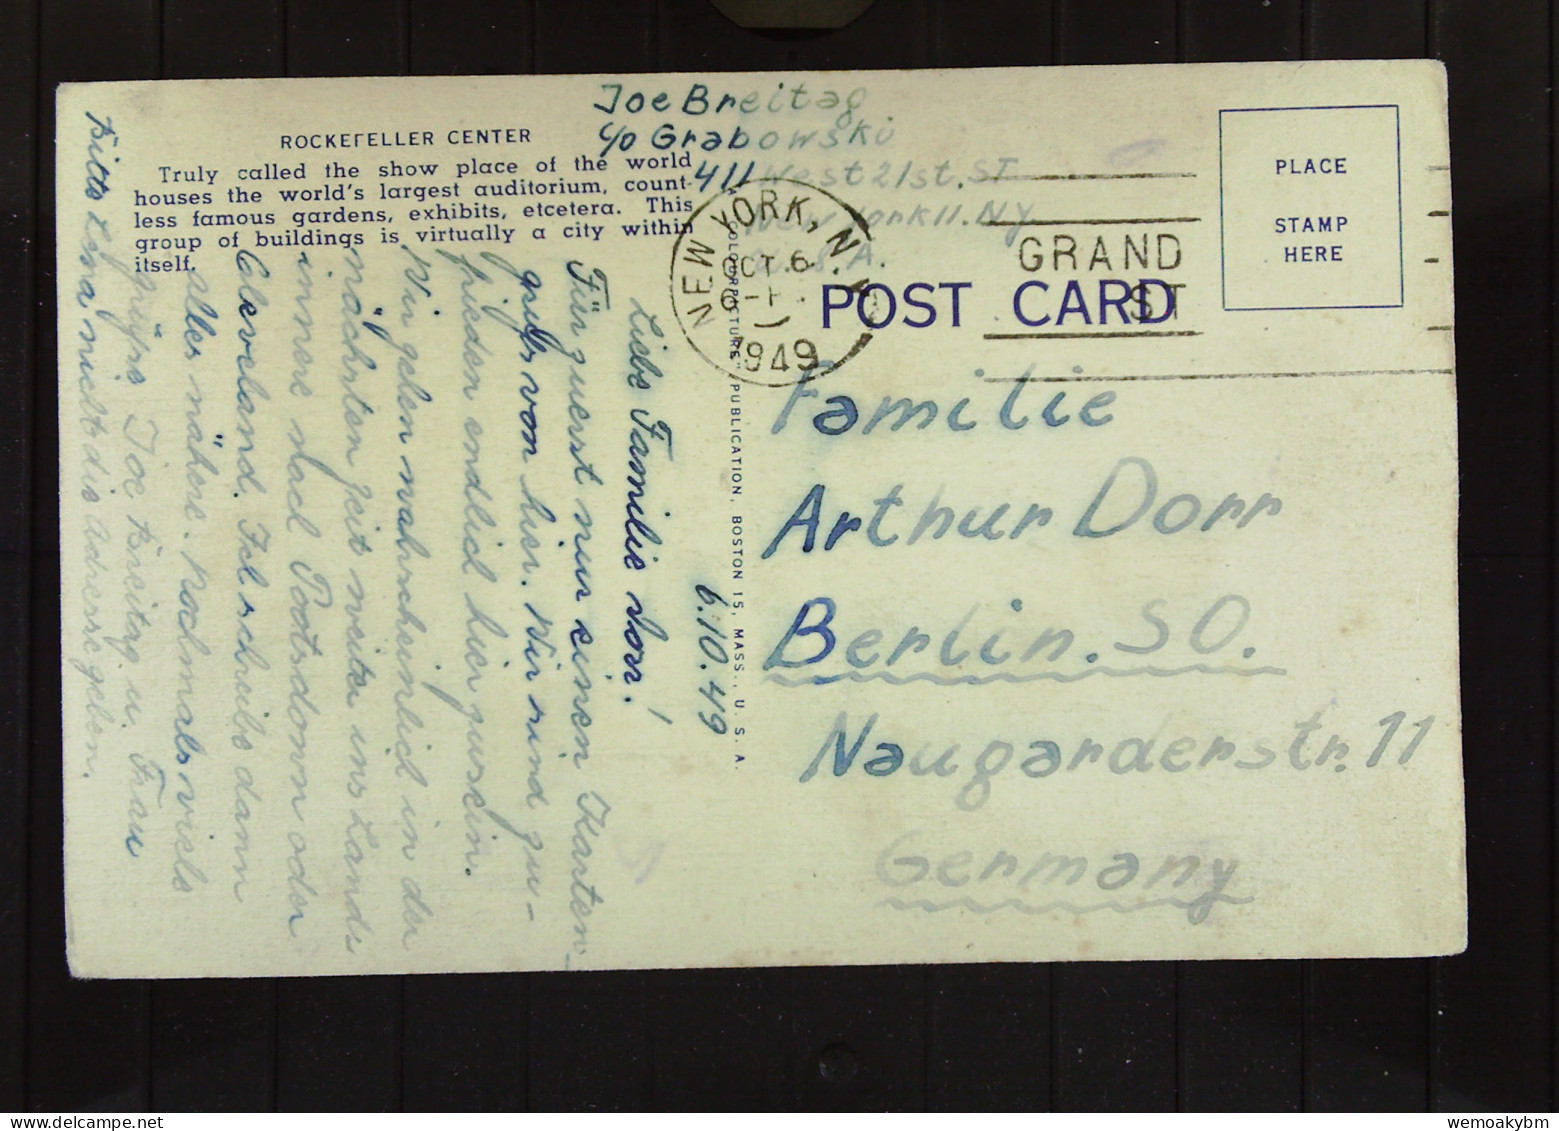 Joe Breitag
c/o Grabowski
411 West 21st. ST
New York 11. Ny
U.S.A.
ROCKEFELLER CENTER
Truly called the show place of the world
houses the world's largest auditorium, count-
less famous gardens, exhibits, etcetera. This
group of buildings is virtually a city within
itself.
NEW YORK, N.Y.
OCT 6
1949
GRAND
ST
PLACE
STAMP
HERE
POST CARD
"COLOURPICTURE" PUBLICATION, BOSTON 15, MASS., U. S. A.
Familie
Arthur Dorr
Berlin. SO.
Naugarderstr. 11
Germany
6.10.49
Liebe Familie Dorr!
Für zuerst nur einen Karten-
gruß von hier. Wir sind zu-
frieden endlich hier zu sein.
Wir gehen wahrscheinlich in der
nächsten Zeit weiter ins Lands
innere nach Pootsdown oder
Cleveland. Ich schreibe dann
alles nähere. Nochmals viele
Grüße Joe Breitag u. Frau
Bitte Erna nicht die Adresse geben.
wemoakybm @
www.delcampe.net